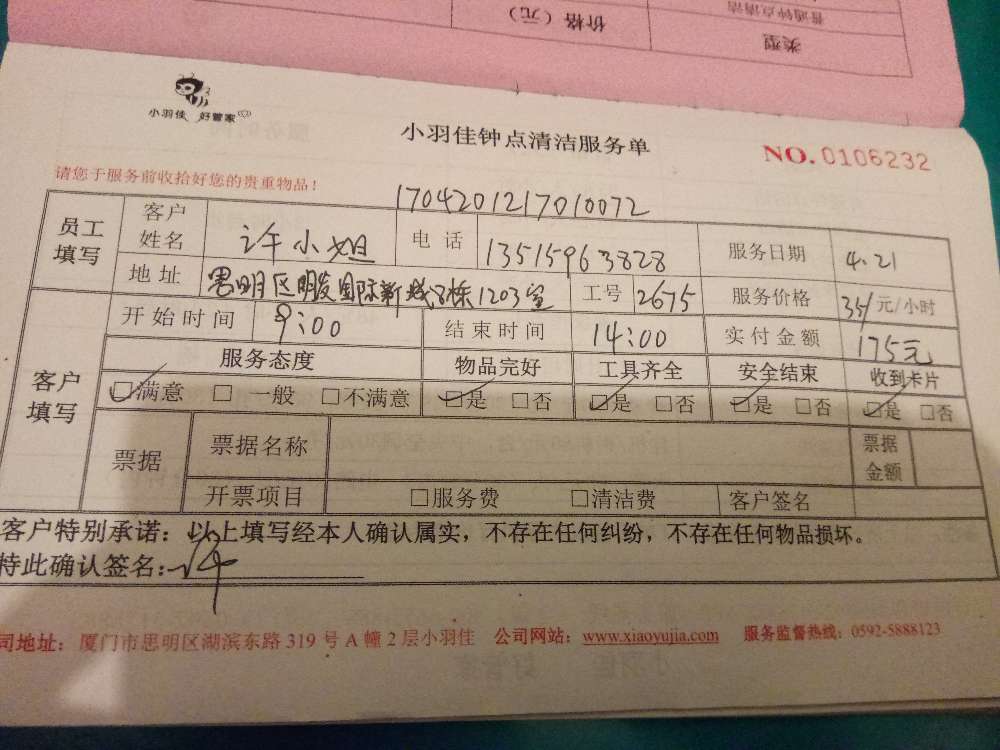 价格（元）
普通钟点清洁
类型
小羽佳 好管家
小羽佳钟点清洁服务单
NO.0106232
请您于服务前收拾好您的贵重物品！
1704201217010072
员工填写 客户姓名 许小姐 电话 13515963828 服务日期 4.21
地址 思明区明发国际新城8栋1203室 工号 2675 服务价格 35/元/小时
客户填写 开始时间 9:00 结束时间 14:00 实付金额 175元
服务态度 物品完好 工具齐全 安全结束 收到卡片
☑满意 □一般 □不满意 ☑是 □否 ☑是 □否 ☑是 □否 ☑是 □否
票据 票据名称 票据金额
开票项目 □服务费 □清洁费 客户签名
客户特别承诺：以上填写经本人确认属实，不存在任何纠纷，不存在任何物品损坏。
特此确认签名：许
司地址：厦门市思明区湖滨东路319号A幢2层小羽佳 公司网站：www.xiaoyujia.com 服务监督热线：0592-5888123